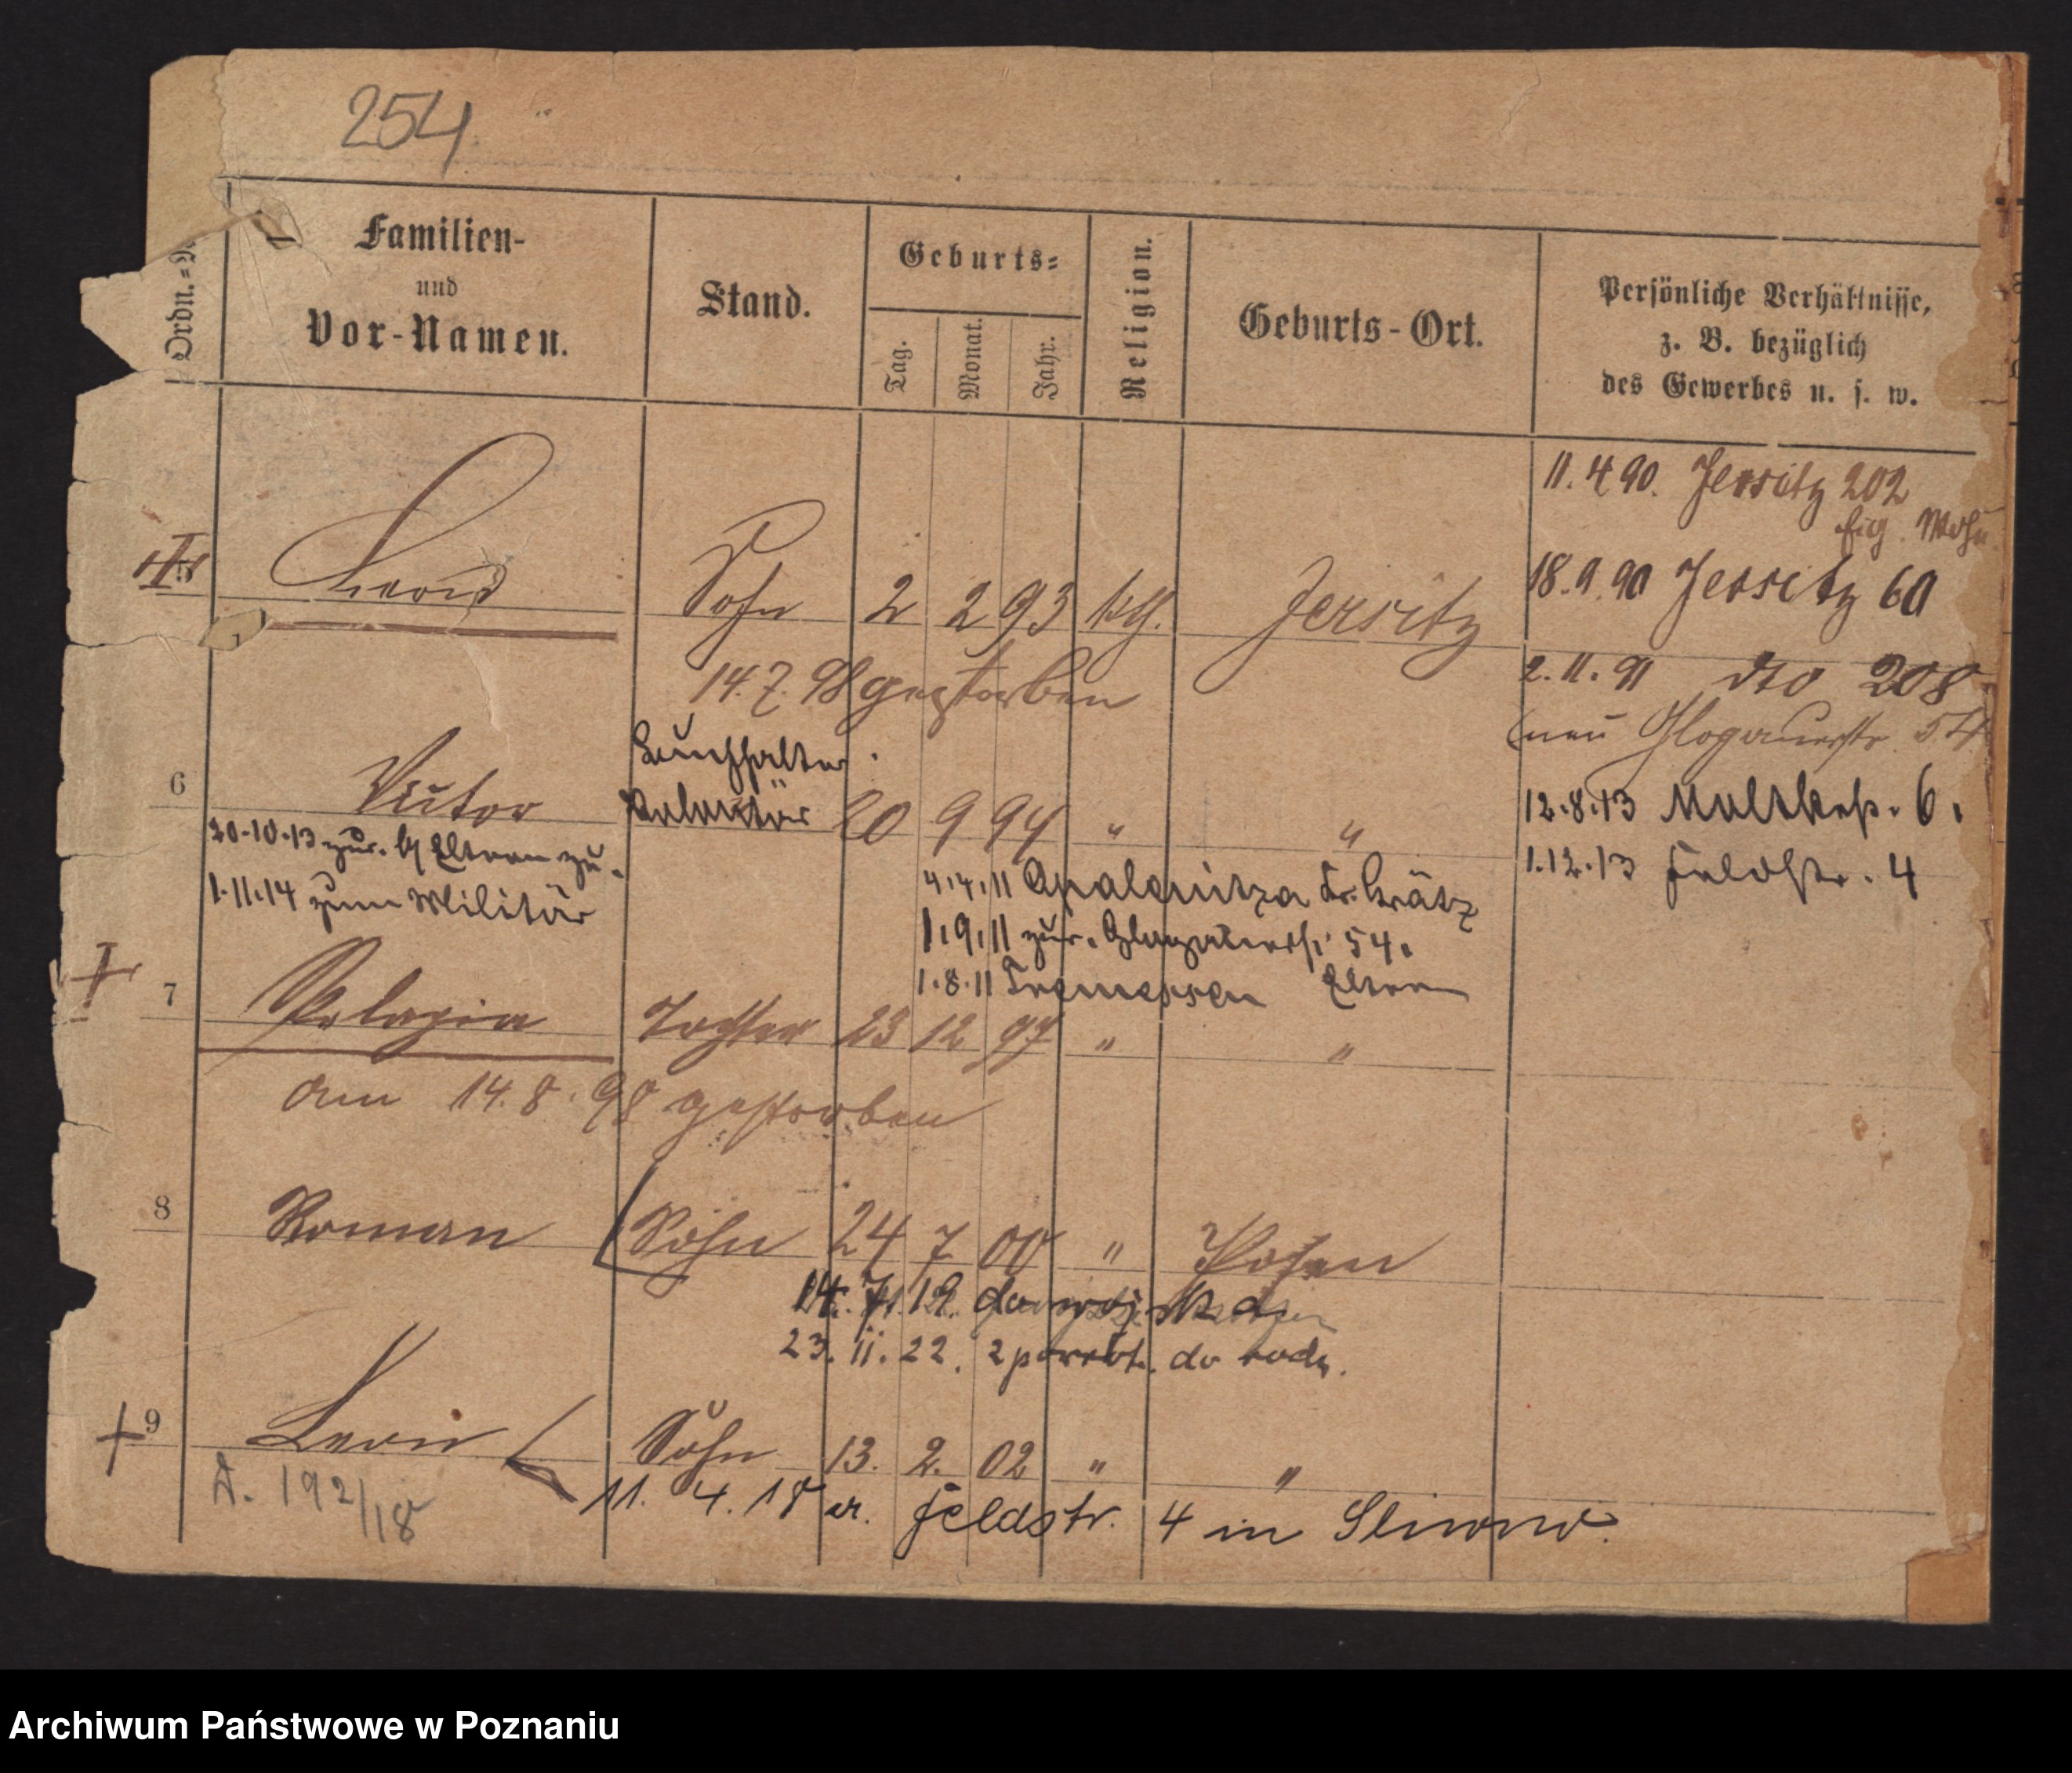 254
Ordn.=N
Familien-
und
Vor-Namen.
Stand.
Geburts=
Tag.
Monat.
Jahr.
Religion.
Geburts-Ort.
Persönliche Verhältnisse,
z. B. bezüglich
des Gewerbes u. s. w.
11. 4 90. Jersitz 202
Eig. Wohn.
5 Leon Sohn 2 2 93 kth. Jersitz
18. 9. 90 Jersitz 60
14. 7. 98 gestorben
2. 11. 91 dto 208
(neu Glogauerstr. 54
Buchhalter.
6 Victor 20 9 94 " "
12.8.13 Moltkestr. 6.
20.10.13 zur. Eltern zu.
1.12.13 Feldstr. 4
1.11.14 zum Militär
4.4.11 Opalenitza Kr. Grätz
1.9.11 zur. Glogauerstr. 54.
1.8.11 Tremessen Eltern
7 Pelagia Tochter 23 12 97 " "
am 14. 8. 98 gestorben
8 Roman Sohn 24 7 00 " Posen
23. 11. 22. z powrot. do rodz.
9 Leon Sohn 13. 2. 02 " "
192/18
11. 4. 18 Feldstr. 4 in
Archiwum Państwowe w Poznaniu